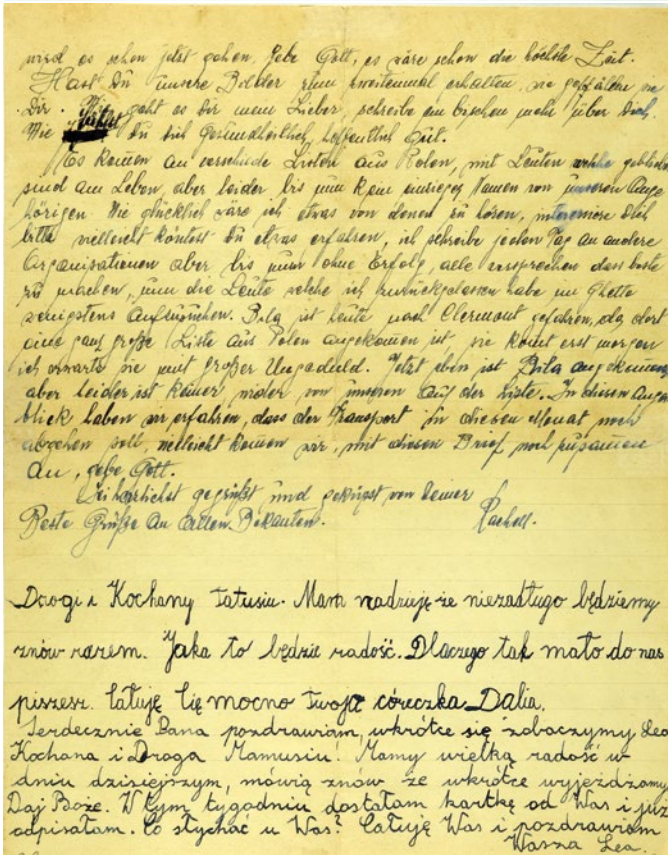 wird es schon jetzt gehen. Gebe Gott, es wäre schon die höchste Zeit.
Hast Du unsere Bilder zum zweitenmal erhalten, wie gefählen sie
Dir. Wie geht es Dir mein Lieber, schreibe ein bischen mehr über Dich.
Wie Du Dich Gesundheitlich, hoffentlich Gut.
Es komen an verschiede Listen aus Polen, mit Leuten welche geblieben
sind am Leben, aber leider bis nun kein einziges Namen von unseren Ange
hörigen. Wie glücklich wäre ich etwas von denen zu hören, Dich
bitte vielleicht köntest Du etwas erfahren, ich schreibe jeden Tag an andere
Organisationen aber bis nun ohne Erfolg, alle versprechen dass beste
zu machen, um die Leute welche ich zurückgelassen habe im Ghetto
wenigstens Bila ist heute nach Clermont gefahren, da dort
eine ganz große Liste aus Polen angekomen ist, sie komt erst morgen
ich erwarte sie mit großer Ungeduld. Jetzt eben ist Bila angekomen,
aber leider ist keiner wider von unseren auf der Liste. In diesen Augen
blick haben wir erfahren, dass der Transport in diesen Monat noch
abgehen soll, vielleicht komen wir, mit diesen Brief noch zusamen
an, gebe Gott.
Sei herzlichst gegrüßt und geküsst von Deiner
Beste Grüße an allen Bekanten. Rachell.
Drogi i Kochany Tatusiu. Mam nadzieję że niezadługo będziemy
znów razem. Jaka to będzie radość. Dlaczego tak mało do nas
piszesz. Całuję Cię mocno Twoja córeczka Dalia.
Serdecznie Pana pozdrawiam, wkrótce się zobaczymy Lea
Kochana i Droga Mamusiu! Mamy wielką radość w
dniu dzisiejszym, mówią znów że wkrótce wyjeżdżamy
Daj Boże. W tym tygodniu dostałam kartkę od Was i już
odpisałam. Co słychać u Was? Całuję Was i pozdrawiam
Wasza Lea.